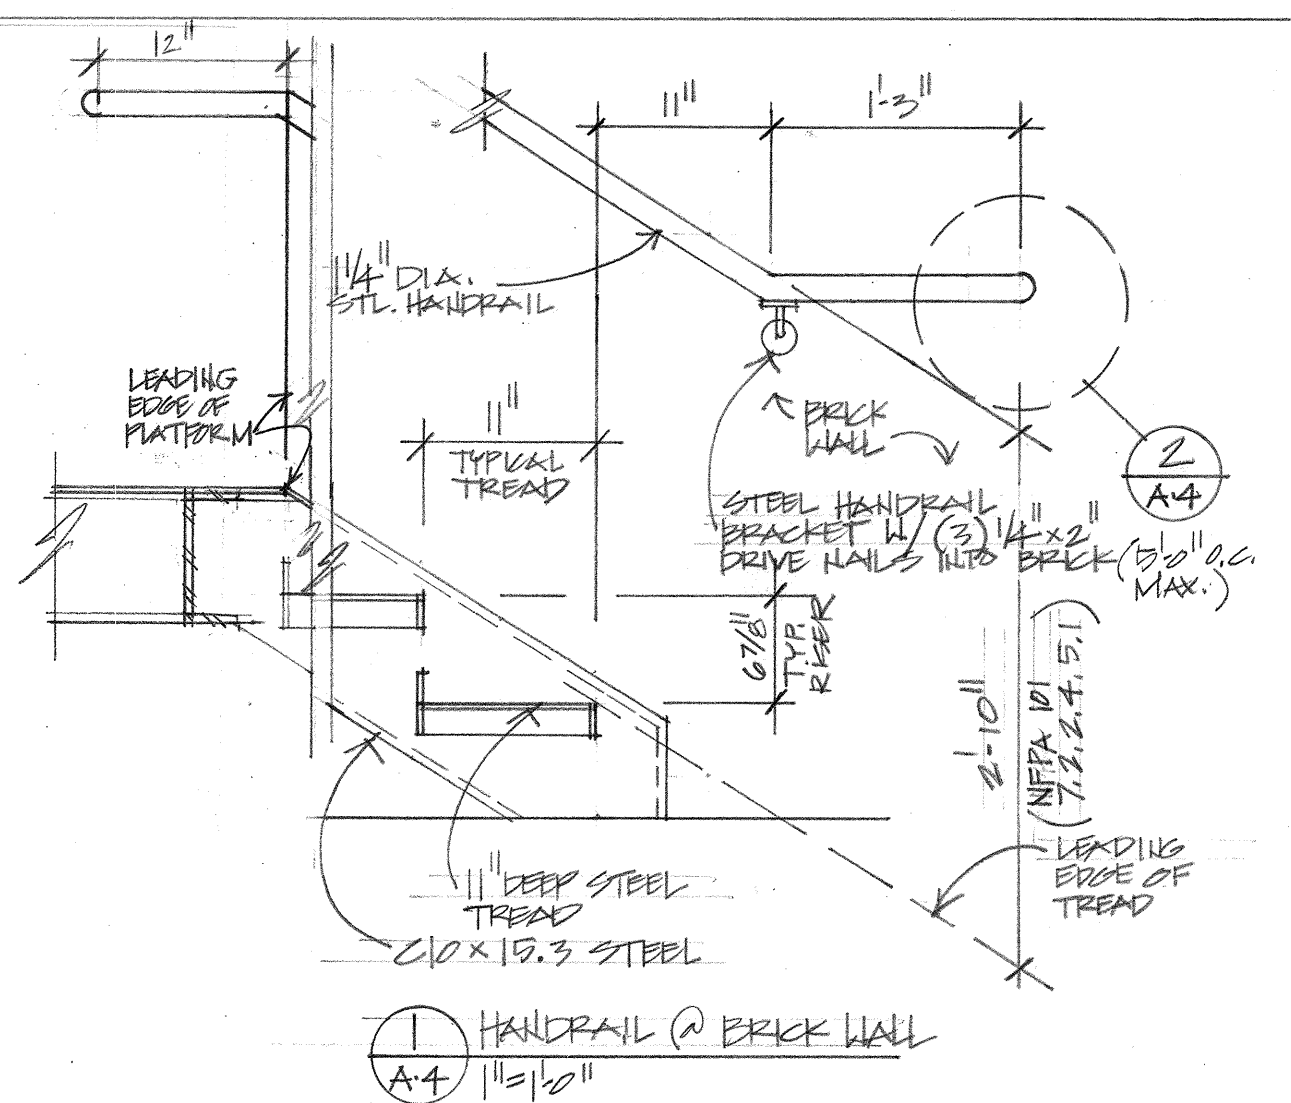 12"
11"
1'-3"
1 1/4" DIA.
STL. HANDRAIL
LEADING
EDGE OF
PLATFORM
11"
TYPICAL
TREAD
BRICK
WALL
2
A·4
STEEL HANDRAIL
BRACKET W/ (3) 1/4" x 2"
DRIVE NAILS INTO BRICK (5'-0" O.C.
MAX.)
6 7/8"
TYP.
RISER
2'-10"
(NFPA 101
7.2.2.4.5.1)
LEADING
EDGE OF
TREAD
11" DEEP STEEL
TREAD
C10 x 15.3 STEEL
1
A·4
HANDRAIL @ BRICK WALL
1"=1'-0"